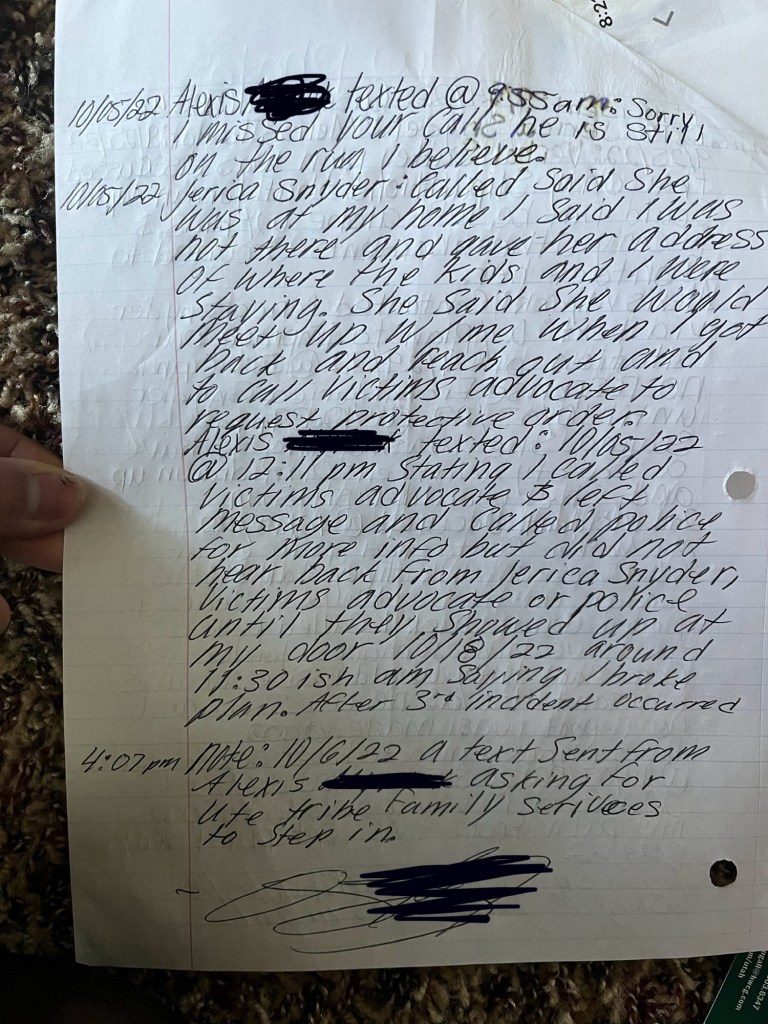 8:2
10/05/22 Alexis texted @ 9:55am: Sorry
I missed your call he is still
on the run I believe.
10/05/22 Jerica Snyder: Called Said She
was at my home I said I was
not there and gave her address
of where the kids and I were
staying. She said she would
meet up w/ me when I got
back and reach out and
to call victims advocate to
request protective order.
Alexis texted: 10/05/22
@ 12:11 pm stating I called
victims advocate & left
message and called police
for more info but did not
hear back from Jerica Snyder,
victims advocate or police
until they showed up at
my door 10/18/22 around
11:30 ish am saying I broke
plan. After 3rd incident occurred
4:07pm note: 10/6/22 a text sent from
Alexis asking for
Ute tribe Family Serivces
to step in.
03.6347
m/utah